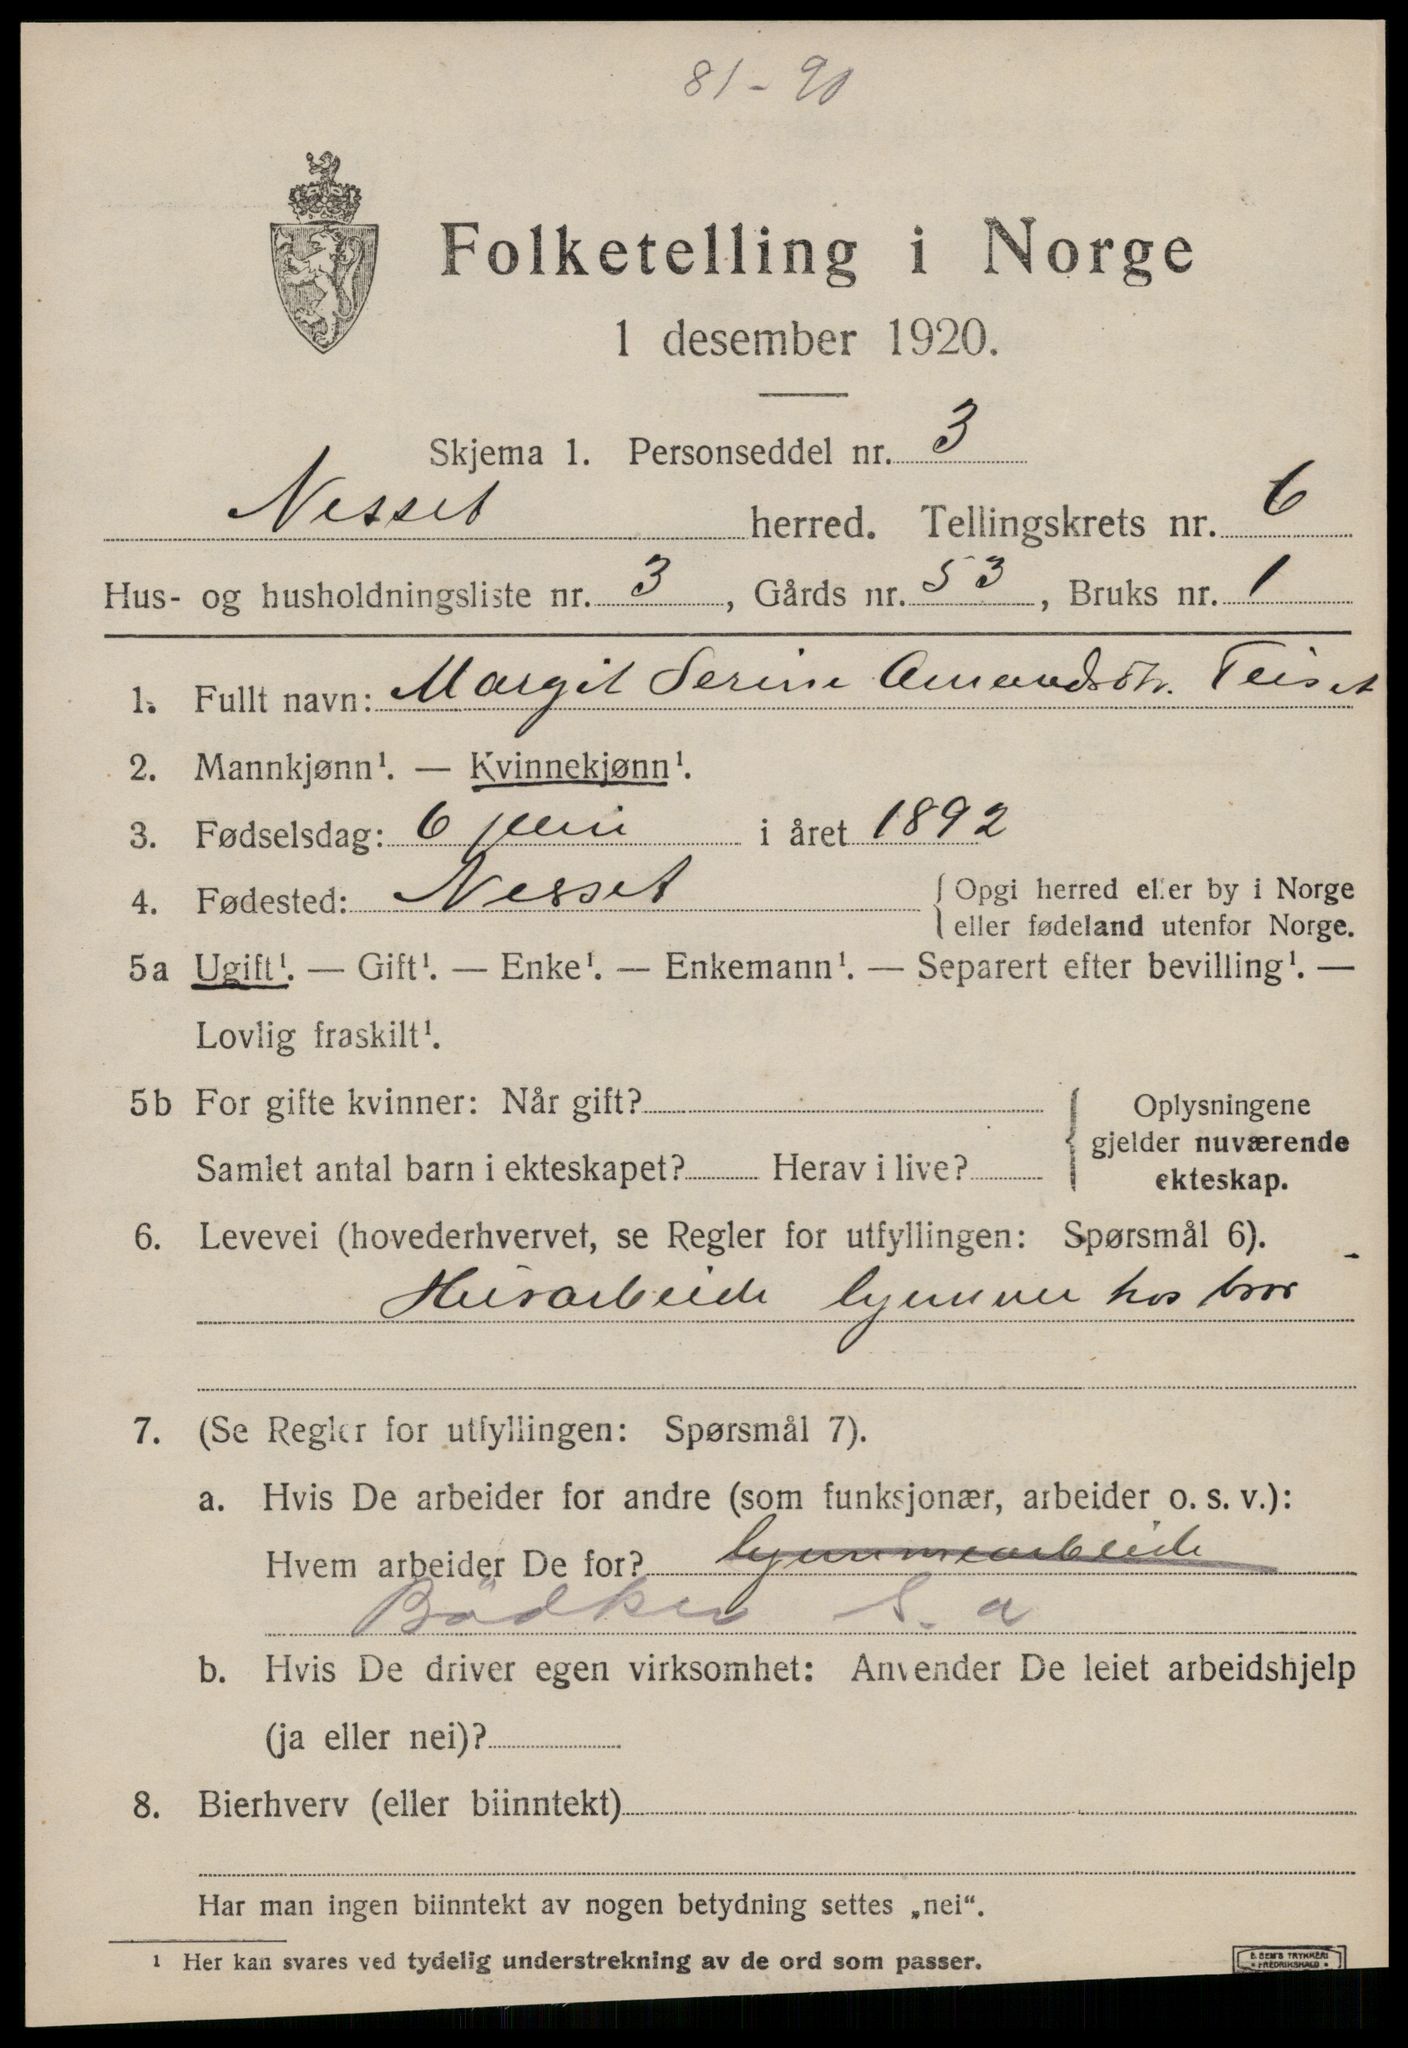 81-90
Folketelling i Norge
1 desember 1920.
Skjema 1. Personseddel nr. 3
Nesset herred. Tellingskrets nr. 6
Hus- og husholdningsliste nr. 3, Gårds nr. 53, Bruks nr. 1
1. Fullt navn: Margit Serine Amandsdtr. Teiset
2. Mannkjønn¹. — Kvinnekjønn¹.
3. Fødselsdag: 6 juni i året 1892
4. Fødested: Nesset { Opgi herred eller by i Norge
eller fødeland utenfor Norge.
5a Ugift¹. — Gift¹. — Enke¹. — Enkemann¹. — Separert efter bevilling¹. —
Lovlig fraskilt¹.
5b For gifte kvinner: Når gift? { Oplysningene
gjelder nuværende
Samlet antal barn i ekteskapet? Herav i live? ekteskap.
6. Levevei (hovederhvervet, se Regler for utfyllingen: Spørsmål 6).
Husarbeide hjemme hos bror
7. (Se Regler for utfyllingen: Spørsmål 7).
a. Hvis De arbeider for andre (som funksjonær, arbeider o. s. v.):
Hvem arbeider De for? hjemmearbeide
Bödker S. a
b. Hvis De driver egen virksomhet: Anvender De leiet arbeidshjelp
(ja eller nei)?
8. Bierhverv (eller biinntekt)
Har man ingen biinntekt av nogen betydning settes „nei“.
¹ Her kan svares ved tydelig understrekning av de ord som passer.
E. SEM'S TRYKKERI
• FREDRIKSHALD •